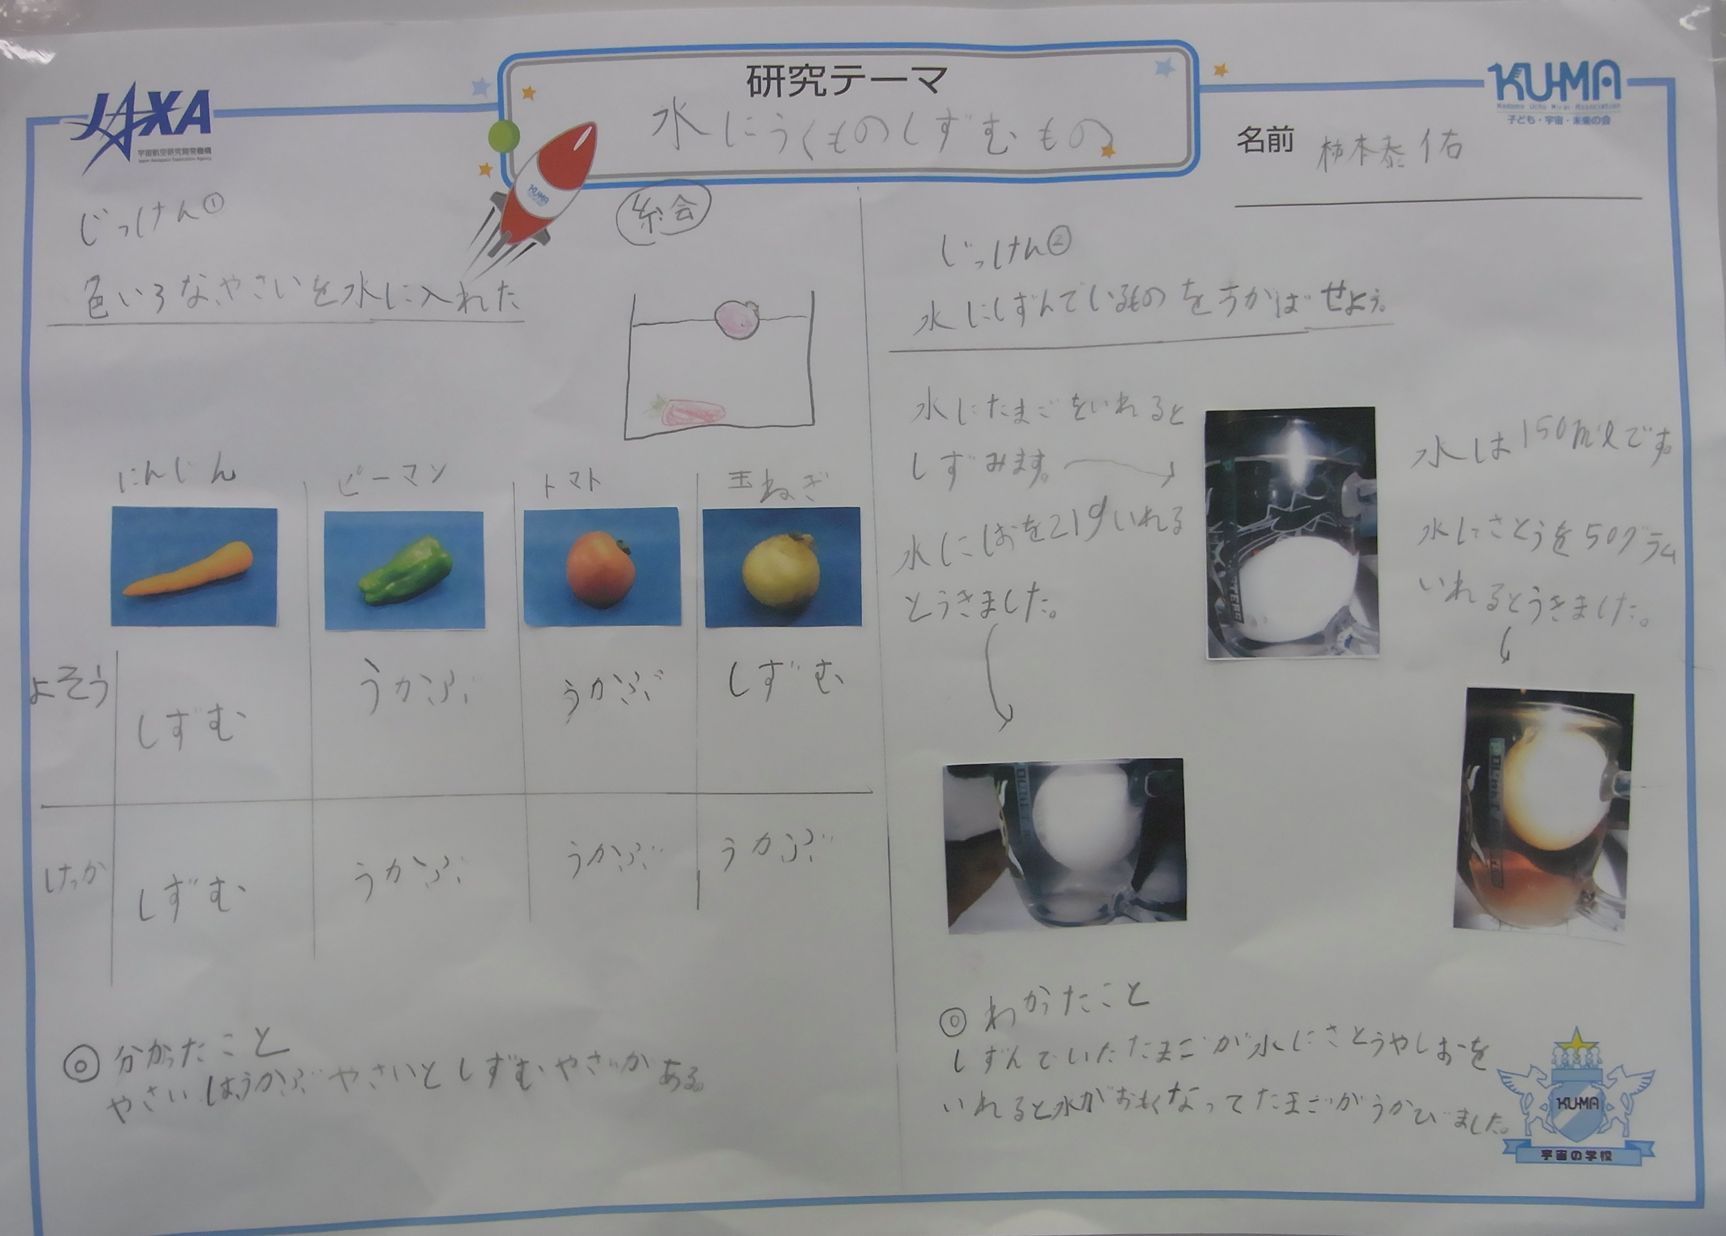 JAXA
宇宙航空研究開発機構
Japan Aerospace Exploration Agency
研究テーマ
水にうくものしずむもの
KU-MA
子ども・宇宙・未来の会
名前 柿本泰佑
KUMA
じっけん①
色いろなやさいを水に入れた
にんじん
ピーマン
トマト
玉ねぎ
よそう
しずむ
うかぶ
うかぶ
しずむ
けっか
しずむ
うかぶ
うかぶ
うかぶ
◎分かったこと
やさいはうかぶやさいとしずむやさいがある。
じっけん②
水にしずんでいるものをうかばせよう。
水にたまごをいれると
しずみます。
水にしおを21gいれる
とうきました。
水は150mlです。
水にさとうを50グラム
いれるとうきました。
◎わかったこと
しずんでいたたまごが水にさとうやしおを
いれると水がおもくなってたまごがうかびました。
KU-MA
宇宙の学校